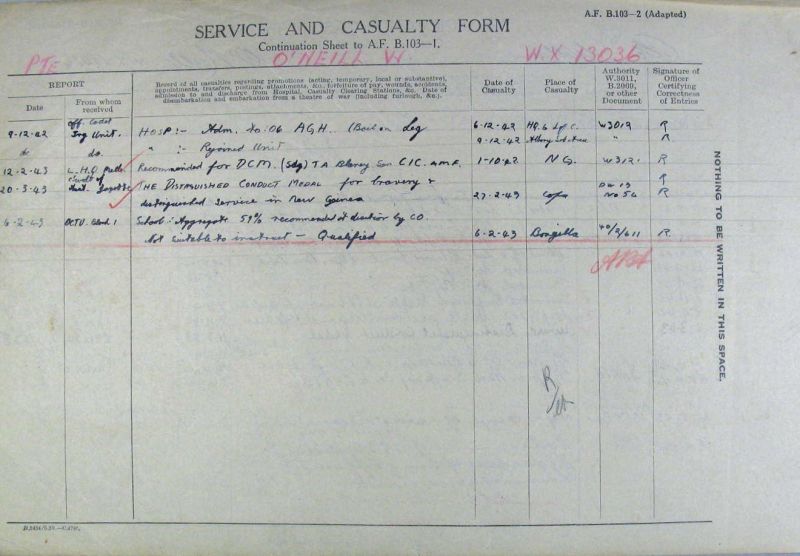 A.F. B.103—2 (Adapted)
SERVICE AND CASUALTY FORM
Continuation Sheet to A.F. B.103—I.
PTE O'NEILL W WX 13036
REPORT
Date
From whom received
Record of all casualties regarding promotions (acting, temporary, local or substantive),
appointments, transfers, postings, attachments, &c., forfeiture of pay, wounds, accidents,
admission to and discharge from Hospital, Casualty Clearing Stations, &c. Date of
disembarkation and embarkation from a theatre of war (including furlough, &c.).
Date of Casualty
Place of Casualty
Authority W.3011, B.2069, or other Document
Signature of Officer Certifying Correctness of Entries
Off Cadet
9-12-42 Trg Unit. HOSP :- Adm. to 106 AGH. (Boil on Leg 6-12-42 W3012 R
do do. " :- Rejoined Unit 9-12-42 " R
12-2-43 L.H.Q. Recommended for DCM. (Sdg) T A Blamey Gen C IC. A.M.F. 1-10-42 N G. W3121 R
20-3-43 THE DISTINGUISHED CONDUCT MEDAL for bravery &
distinguished service in New Guinea 27-2-43 No 54 R
6-2-43 OCTU School :- Aggregate 59% recommended at discretion by CO.
Not suitable to instruct — Qualified 6-2-43 Bonegilla 40/2/611 R
NOTHING TO BE WRITTEN IN THIS SPACE.